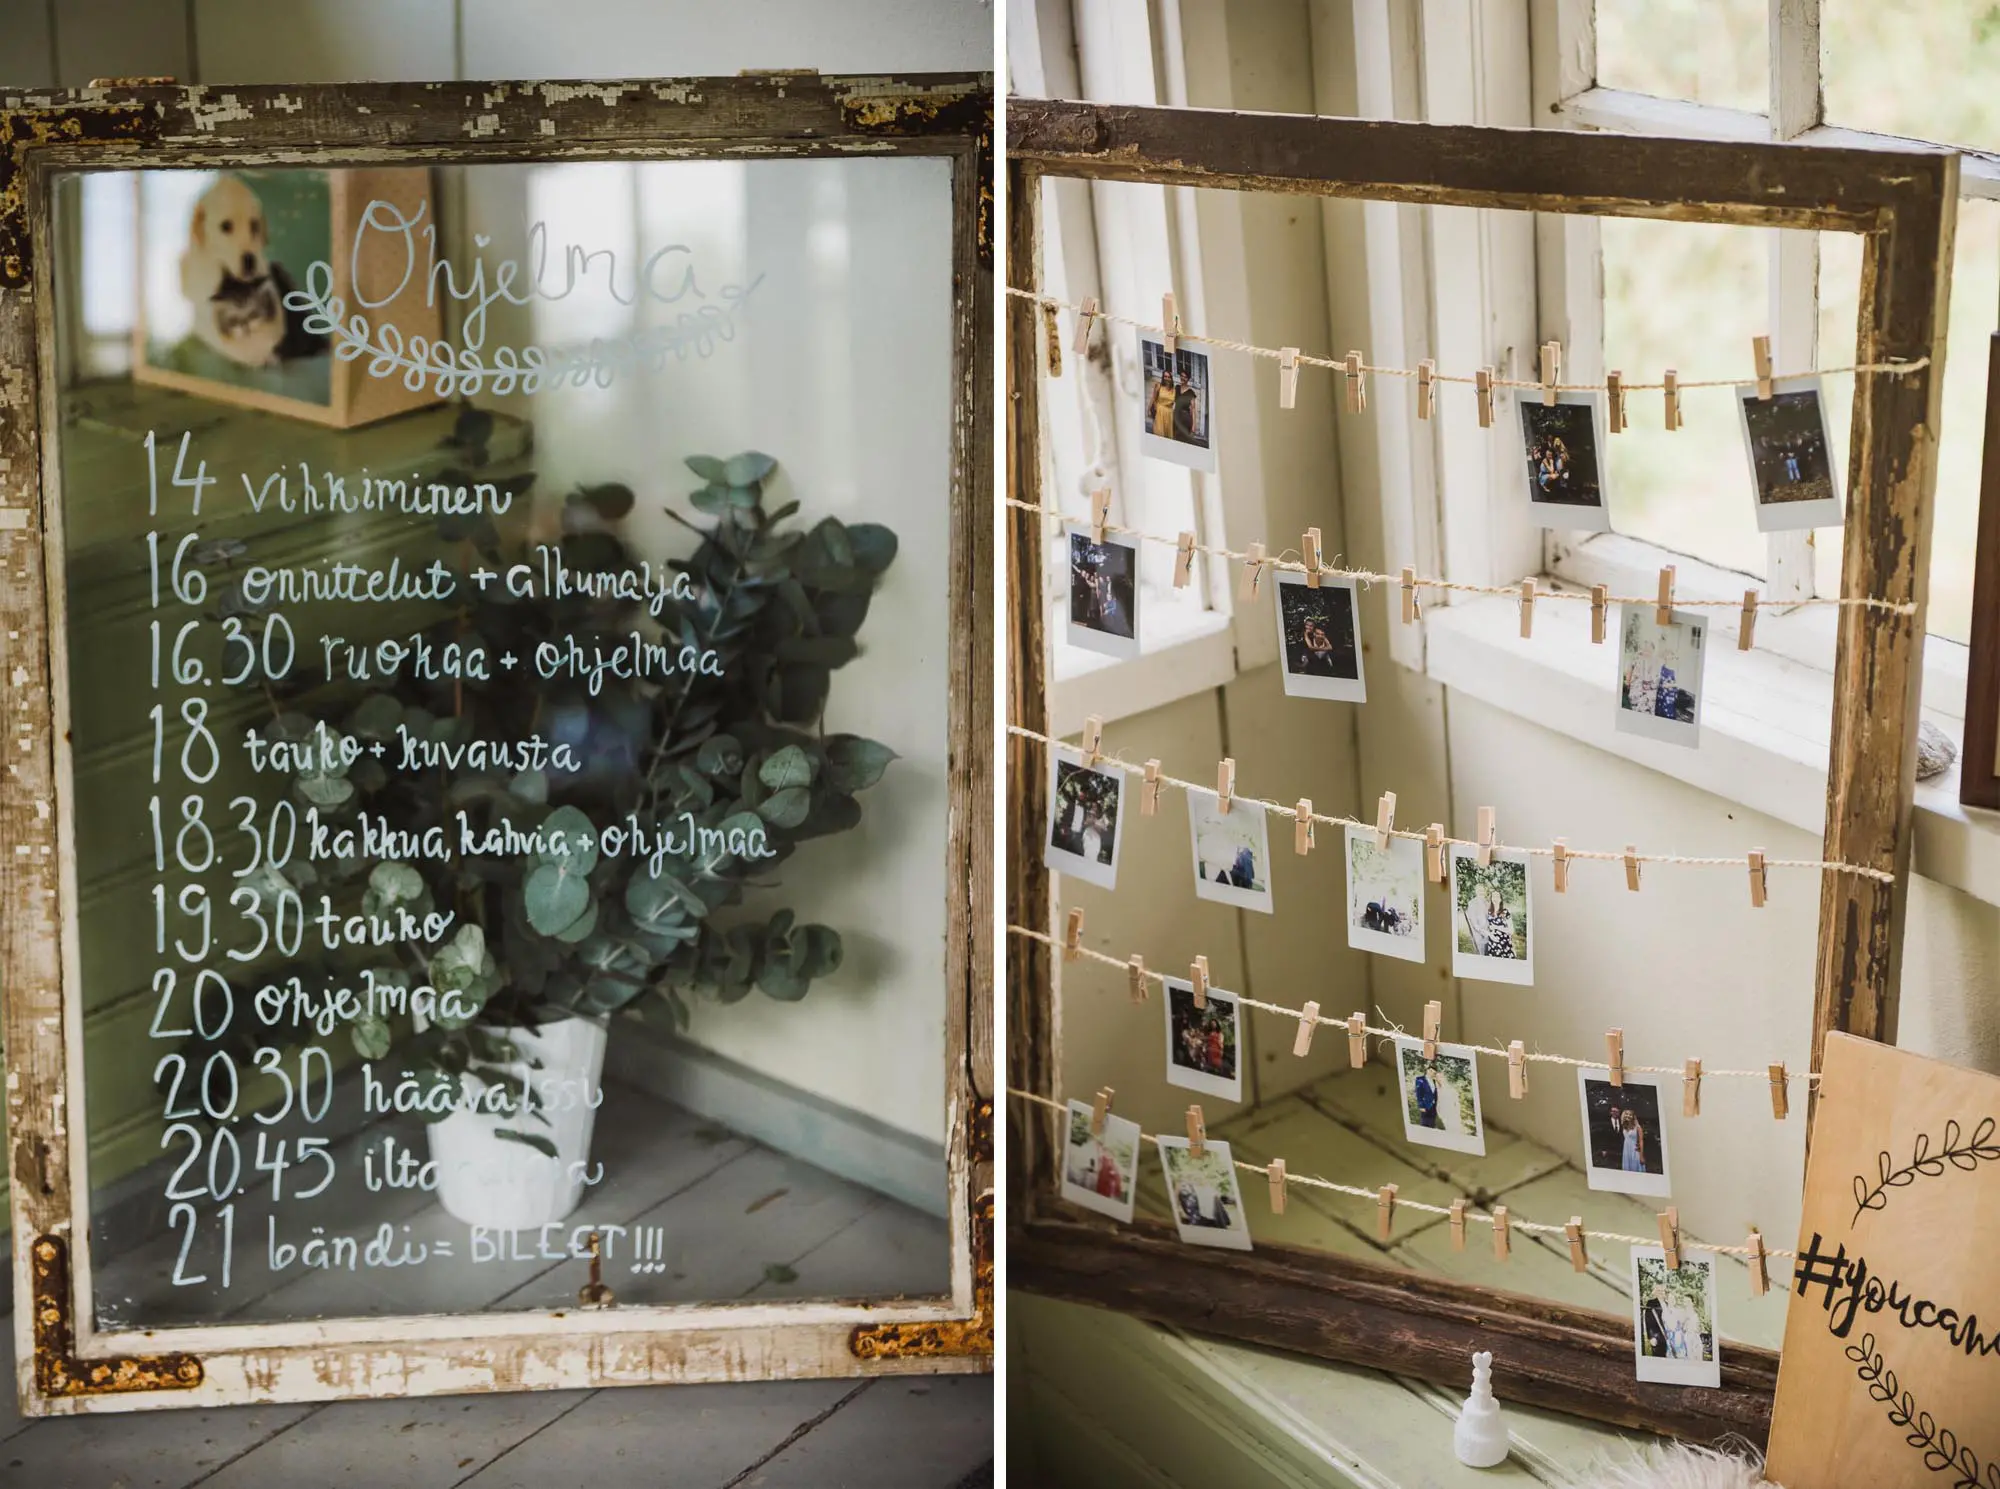 Ohjelma
14 vihkiminen
16 onnittelut + alkumalja
16.30 ruokaa + ohjelmaa
18 tauko + kuvausta
18.30 kakkua, kahvia + ohjelmaa
19.30 tauko
20 ohjelmaa
20.30 häävalssi
20.45
21 bändi = BILEET!!!